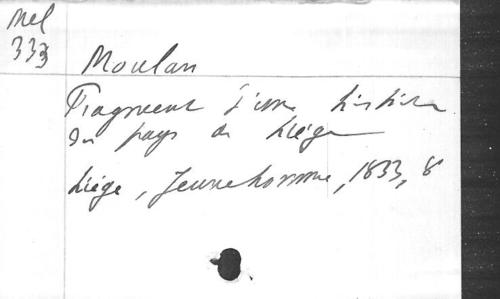 Mel
333
Moulan
Fragment d'une histoire
du pays de Liége
Liége, Jeunehomme, 1833, 8